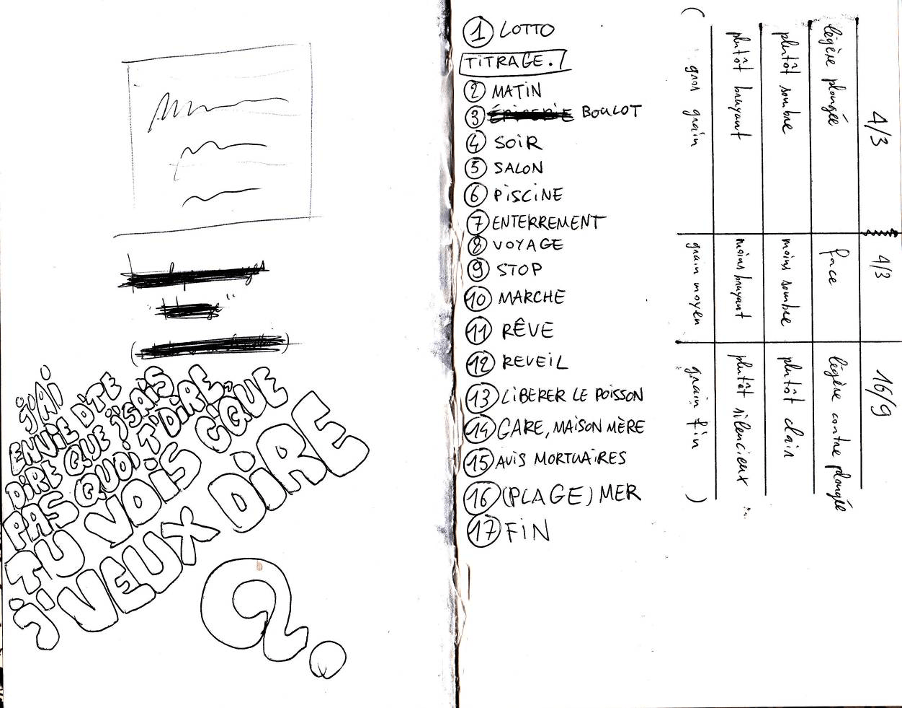 J'AI
ENVIE D'TE
DIRE QUE J'SAIS
PAS QUOI T'DIRE,
TU VOIS C'QUE
J'VEUX DIRE
?
1 LOTTO
TITRAGE.
2 MATIN
3 ÉPICERIE BOULOT
4 SOIR
5 SALON
6 PISCINE
7 ENTERREMENT
8 VOYAGE
9 STOP
10 MARCHE
11 RÊVE
12 REVEIL
13 LIBERER LE POISSON
14 GARE, MAISON MÈRE
15 AVIS MORTUAIRES
16 (PLAGE) MER
17 FIN
4/3 4/3 16/9
légère plongée face légère contre plongée
plutôt sombre moins sombre plutôt clair
plutôt bruyant moins bruyant plutôt silencieux
( gros grain grain moyen grain fin )